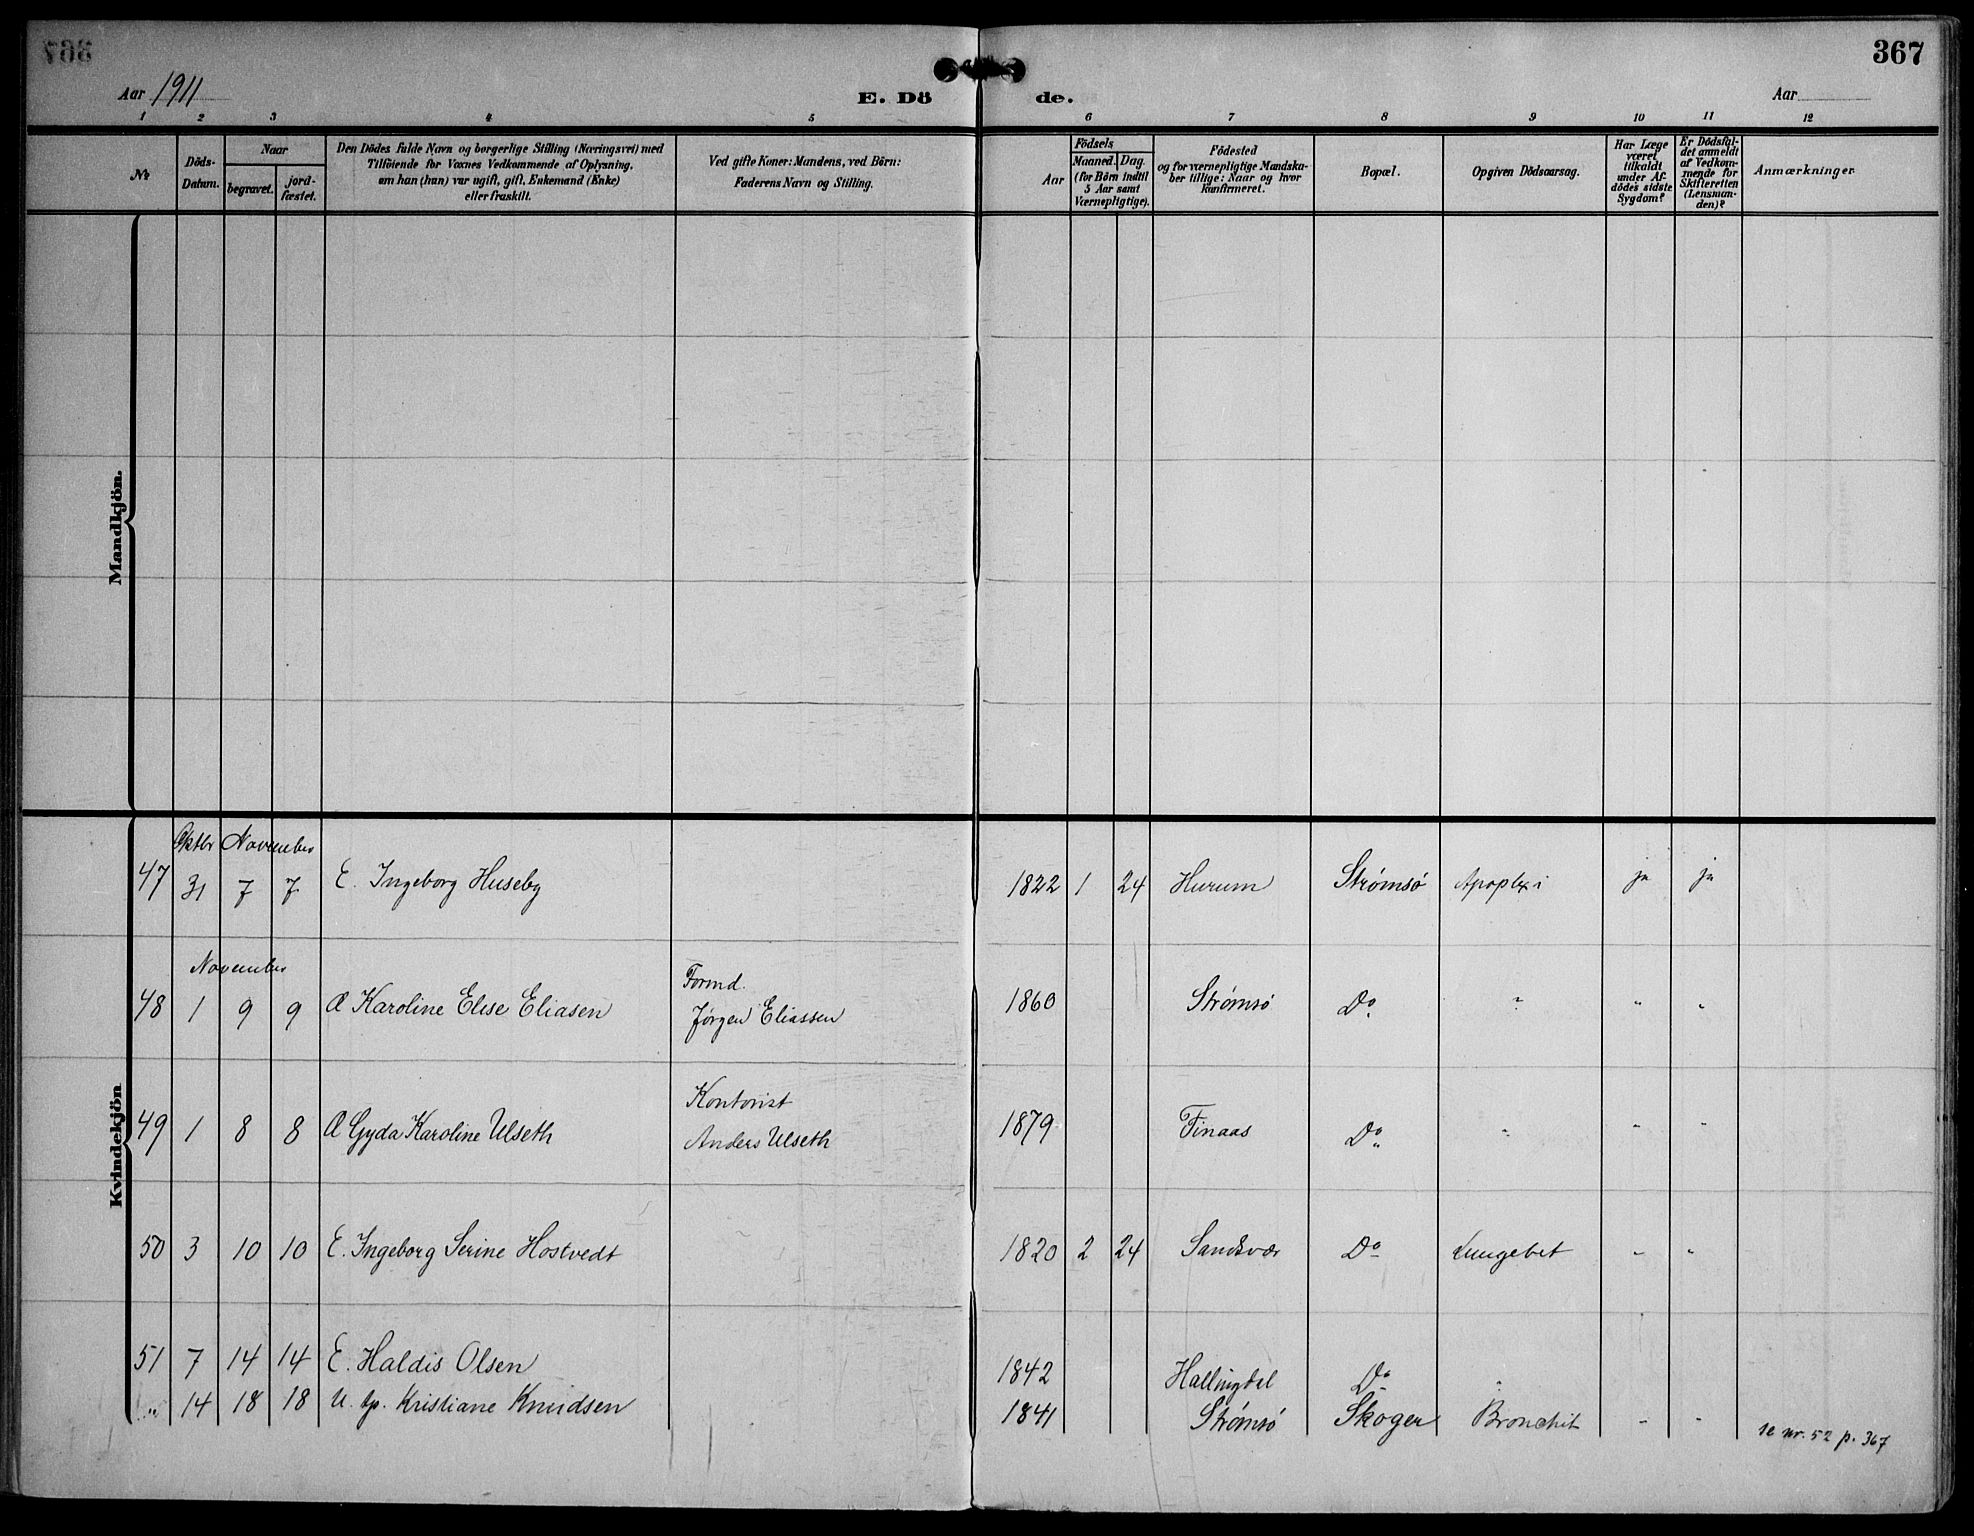 367
Aar 1911
E. Döde.
Aar
1 2 3 4 5 6 7 8 9 10 11 12
№
Döds-Datum.
Naar
begravet.
jord-fæstet.
Den Dödes fulde Navn og borgerlige Stilling (Næringsvei) med
Tilföiende for Voxnes Vedkommende af Oplysning,
om han (hun) var ugift, gift, Enkemand (Enke)
eller fraskilt.
Ved gifte Koner: Mandens, ved Börn:
Faderens Navn og Stilling.
Födsels
Aar
Maaned. Dag.
(for Börn indtil
5 Aar samt
Værnepligtige).
Födested
og for værnepligtige Mandska-
ber tillige: Naar og hvor
konfirmeret.
Bopæl.
Opgiven Dödsaarsag.
Har Læge
været
tilkaldt
under Af-
dödes sidste
Sygdom?
Er Dödsfal-
det anmeldt
af Vedkom-
mende for
Skifteretten
(Lensman-
den)?
Anmærkninger
Mandkjön.
Kvindekjön
Oktbr November
47 31 7 7 E. Ingeborg Huseby 1822 1 24 Hurum Strømsø Apoplexi ja ja
November
Formd.
48 1 9 9 Æ Karoline Elise Eliasen Jørgen Eliassen 1860 Strømsø Do " " "
Kontorist
49 1 8 8 Æ Gyda Karoline Ulseth Anders Ulseth 1879 Finaas Do " " "
50 3 10 10 E. Ingeborg Serine Hostvedt 1820 2 24 Sandsvær Do Lungebet " "
51 7 14 14 E. Haldis Olsen 1842 Hallingdal Do "
" 14 18 18 U. tp. Kristiane Knudsen 1841 Strømsø Skoger Bronchit " "
se nr. 52 p. 367